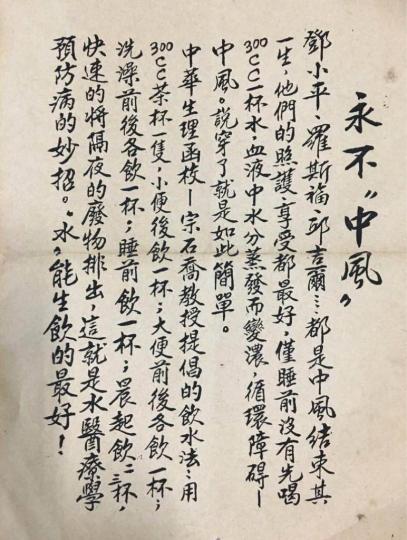 永不“中風”
鄧小平、羅斯福、邱吉爾⋯都是中風結束其
一生，他們的照護、享受都最好，僅睡前沒有先喝
300CC一杯水，血液中水分蒸發而變濃，循環障碍—
中風。說穿了就是如此簡單。
中華生理函校—宗石喬教授提倡的飲水法：用
300CC茶杯一隻，小便後飲一杯；大便前後各飲一杯；
洗澡前後各飲一杯；睡前飲一杯；晨起飲二三杯，
快速的將隔夜的廢物排出，這就是水醫療學
預防病的妙招。“水”能生飲的最好！